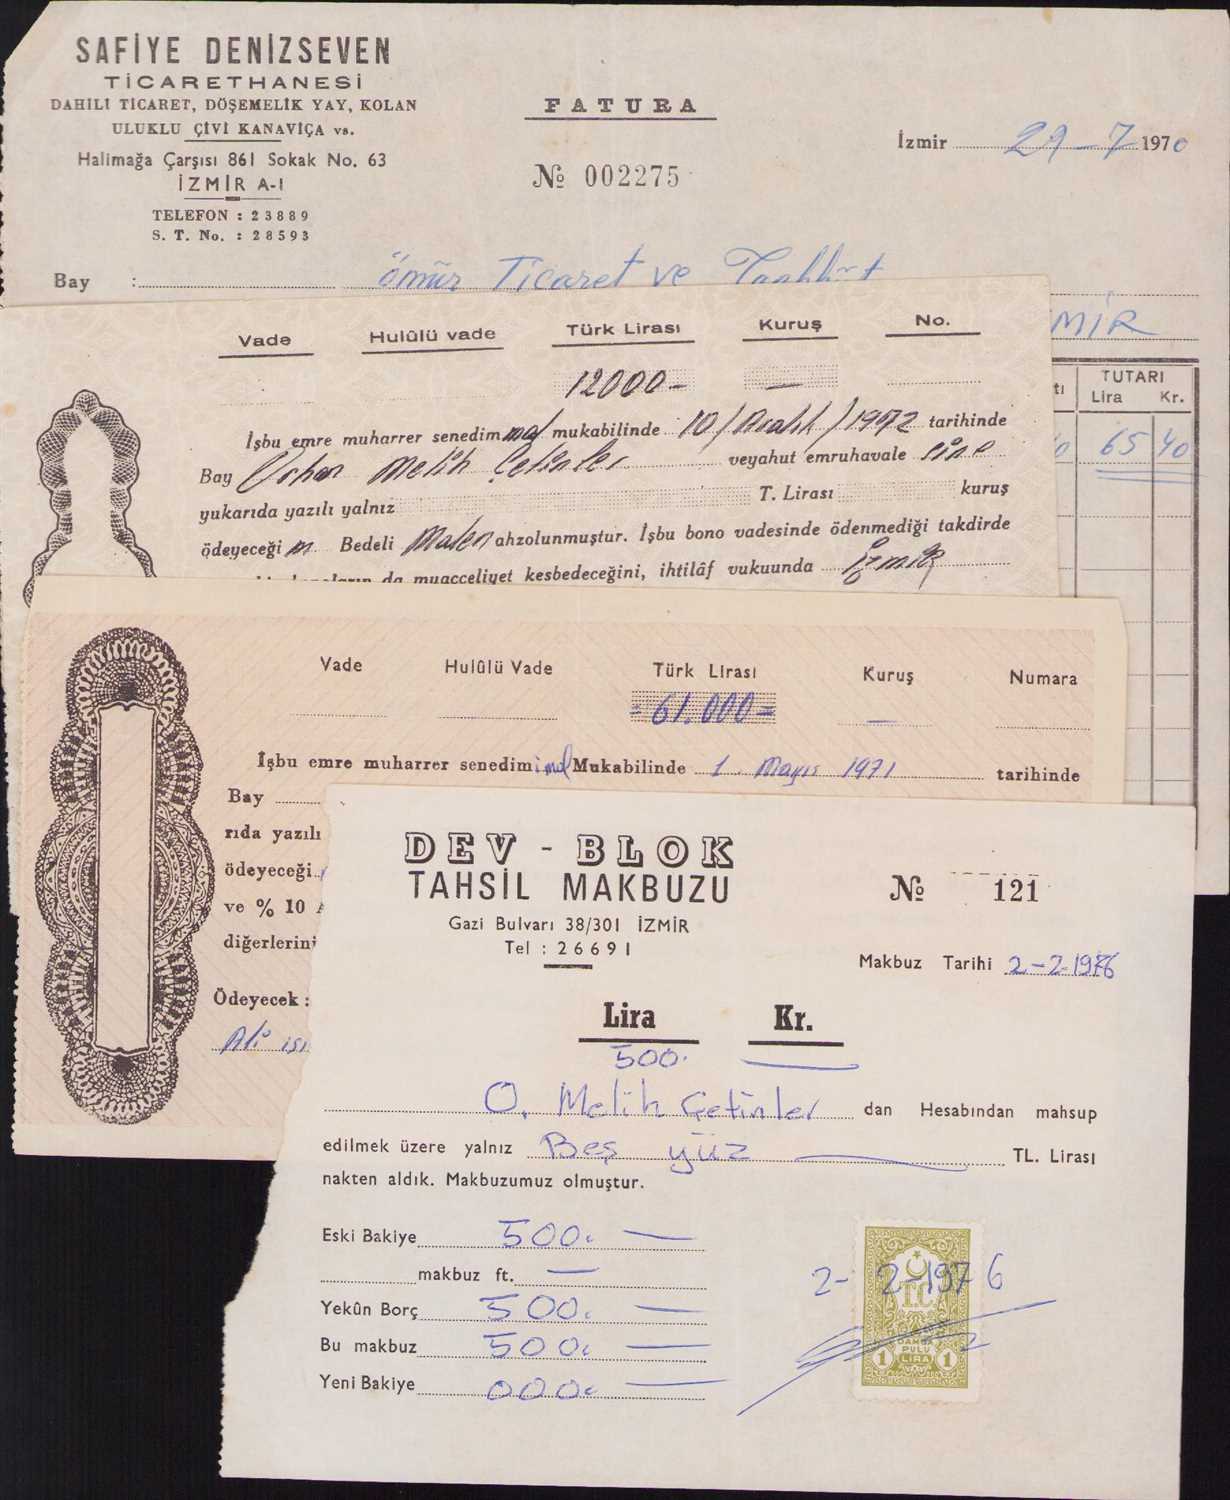 SAFİYE DENİZSEVEN
TİCARETHANESİ
DAHİLİ TİCARET, DÖŞEMELİK YAY, KOLAN
ULUKLU ÇİVİ KANAVİÇA vs.
Halimağa Çarşısı 861 Sokak No. 63
İZMİR A-I
TELEFON : 23889
S. T. No. : 28593
FATURA
№ 002275
İzmir 29-7 1970
Bay : Ömür Ticaret ve Taahhüt
MİR
TUTARI
Lira Kr.
65 40
Vade Hulûlü vade Türk Lirası Kuruş No.
12000- —
İşbu emre muharrer senedim mukabilinde 10/Aralık/1972 tarihinde
Bay Orhan Melih Çetinler veyahut emruhavale sine
yukarıda yazılı yalnız T. Lirası kuruş
ödeyeceği m Bedeli Malen ahzolunmuştur. İşbu bono vadesinde ödenmediği takdirde
da muacceliyet kesbedeceğini, ihtilâf vukuunda İzmir
Vade Hulûlü Vade Türk Lirası Kuruş Numara
=61.000= —
İşbu emre muharrer senedim Mukabilinde 1 . Mayıs 1971 tarihinde
Bay
rıda yazılı
ödeyeceği
ve % 10
diğerlerini
Ödeyecek :
Ali
DEV - BLOK
TAHSİL MAKBUZU
Gazi Bulvarı 38/301 İZMİR
Tel : 26691
№ 121
Makbuz Tarihi 2-2-1976
Lira Kr.
500. —
O. Melih Çetinler dan Hesabından mahsup
edilmek üzere yalnız Beş yüz — TL. Lirası
nakten aldık. Makbuzumuz olmuştur.
Eski Bakiye 500. —
makbuz ft. —
Yekûn Borç 500. —
Bu makbuz 500. —
Yeni Bakiye 000. —
2-2-1976
T.C.
DAMGA
PULU
1 LİRA 1